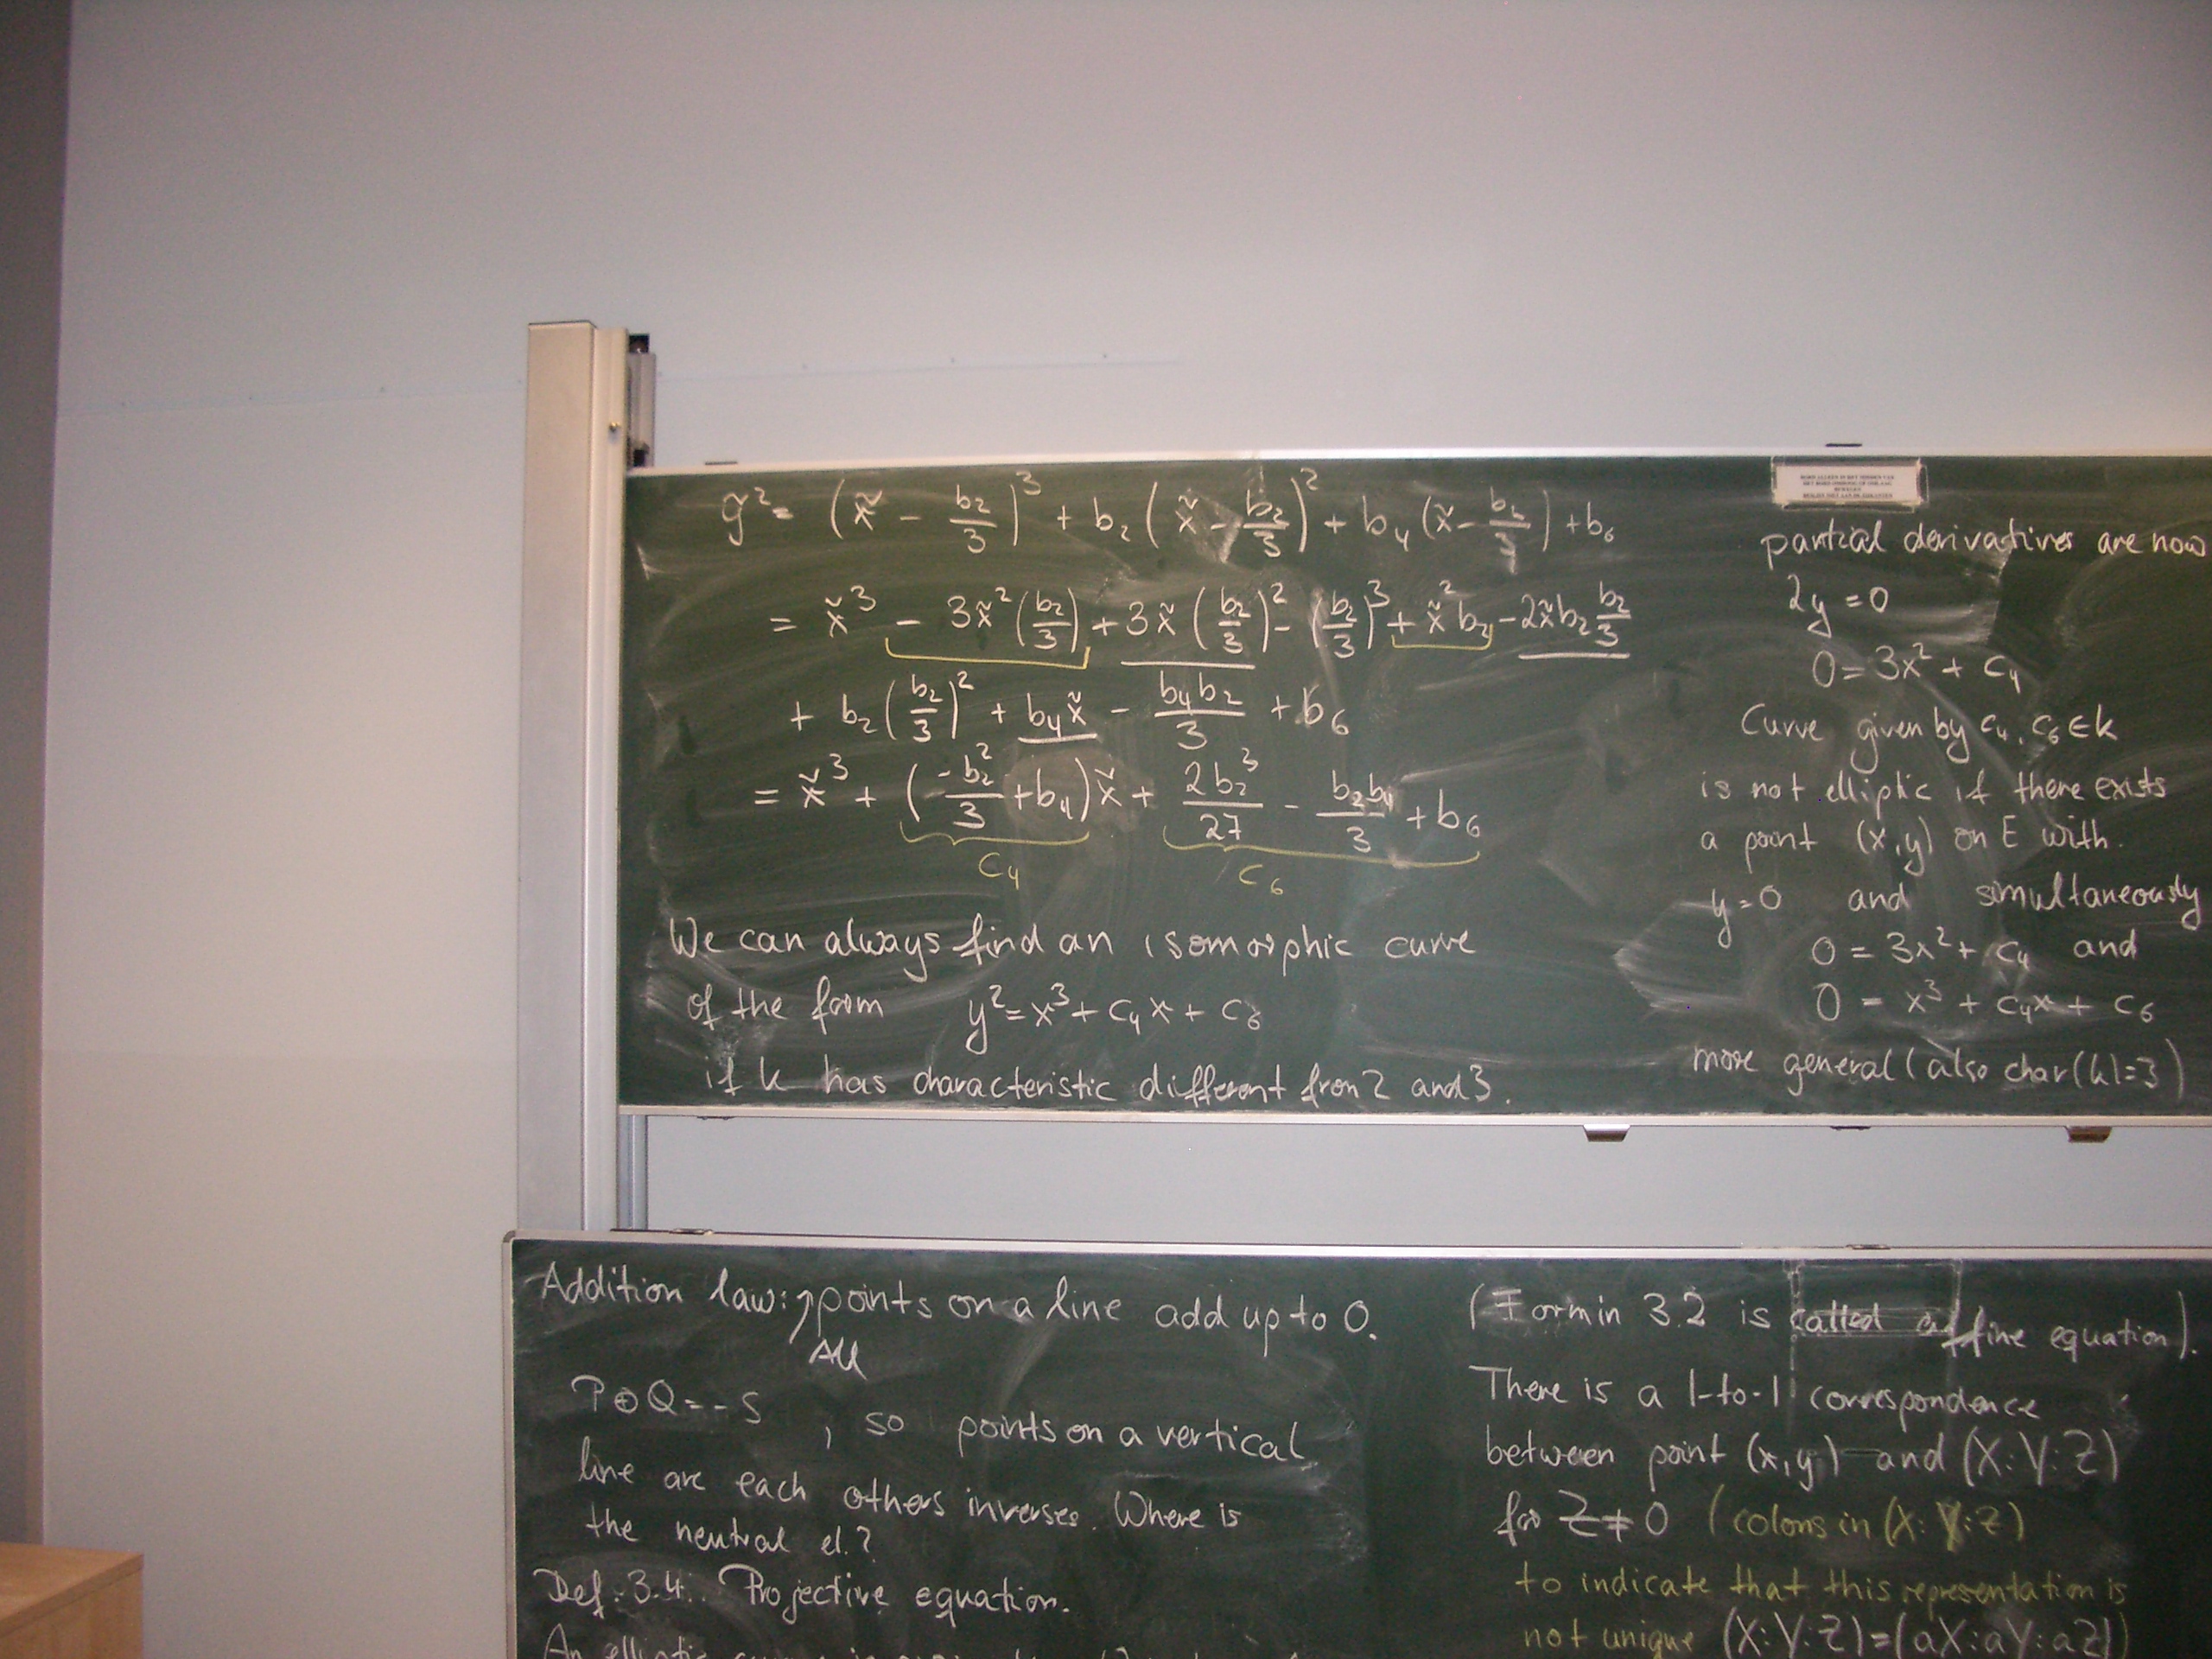 ỹ² = (x̃ - b₂/3)³ + b₂(x̃ - b₂/3)² + b₄(x̃ - b₂/3) + b₆
= x̃³ - 3x̃²(b₂/3) + 3x̃(b₂/3)² - (b₂/3)³ + x̃²b₂ - 2x̃b₂ b₂/3
+ b₂(b₂/3)² + b₄x̃ - b₄b₂/3 + b₆
= x̃³ + (-b₂²/3 + b₄)x̃ + 2b₂³/27 - b₂b₄/3 + b₆
c₄ c₆
We can always find an isomorphic curve
of the form y² = x³ + c₄x + c₆
if k has characteristic different from 2 and 3.
partial derivatives are now
2y = 0
0 = 3x² + c₄
Curve given by c₄, c₆ ∈ k
is not elliptic if there exists
a point (x,y) on E with
y = 0 and simultaneously
0 = 3x² + c₄ and
0 = x³ + c₄x + c₆
more general (also char(k)=3)
Addition law: points on a line add up to 0.
All
P⊕Q = -S, so points on a vertical
line are each others inverses. Where is
the neutral el.?
Def. 3.4. Projective equation.
An elliptic
(Form in 3.2 is called affine equation).
There is a 1-to-1 correspondence
between point (x,y) and (X:Y:Z)
for Z≠0 (colons in (X:Y:Z)
to indicate that this representation is
not unique (X:Y:Z)=(aX:aY:aZ))